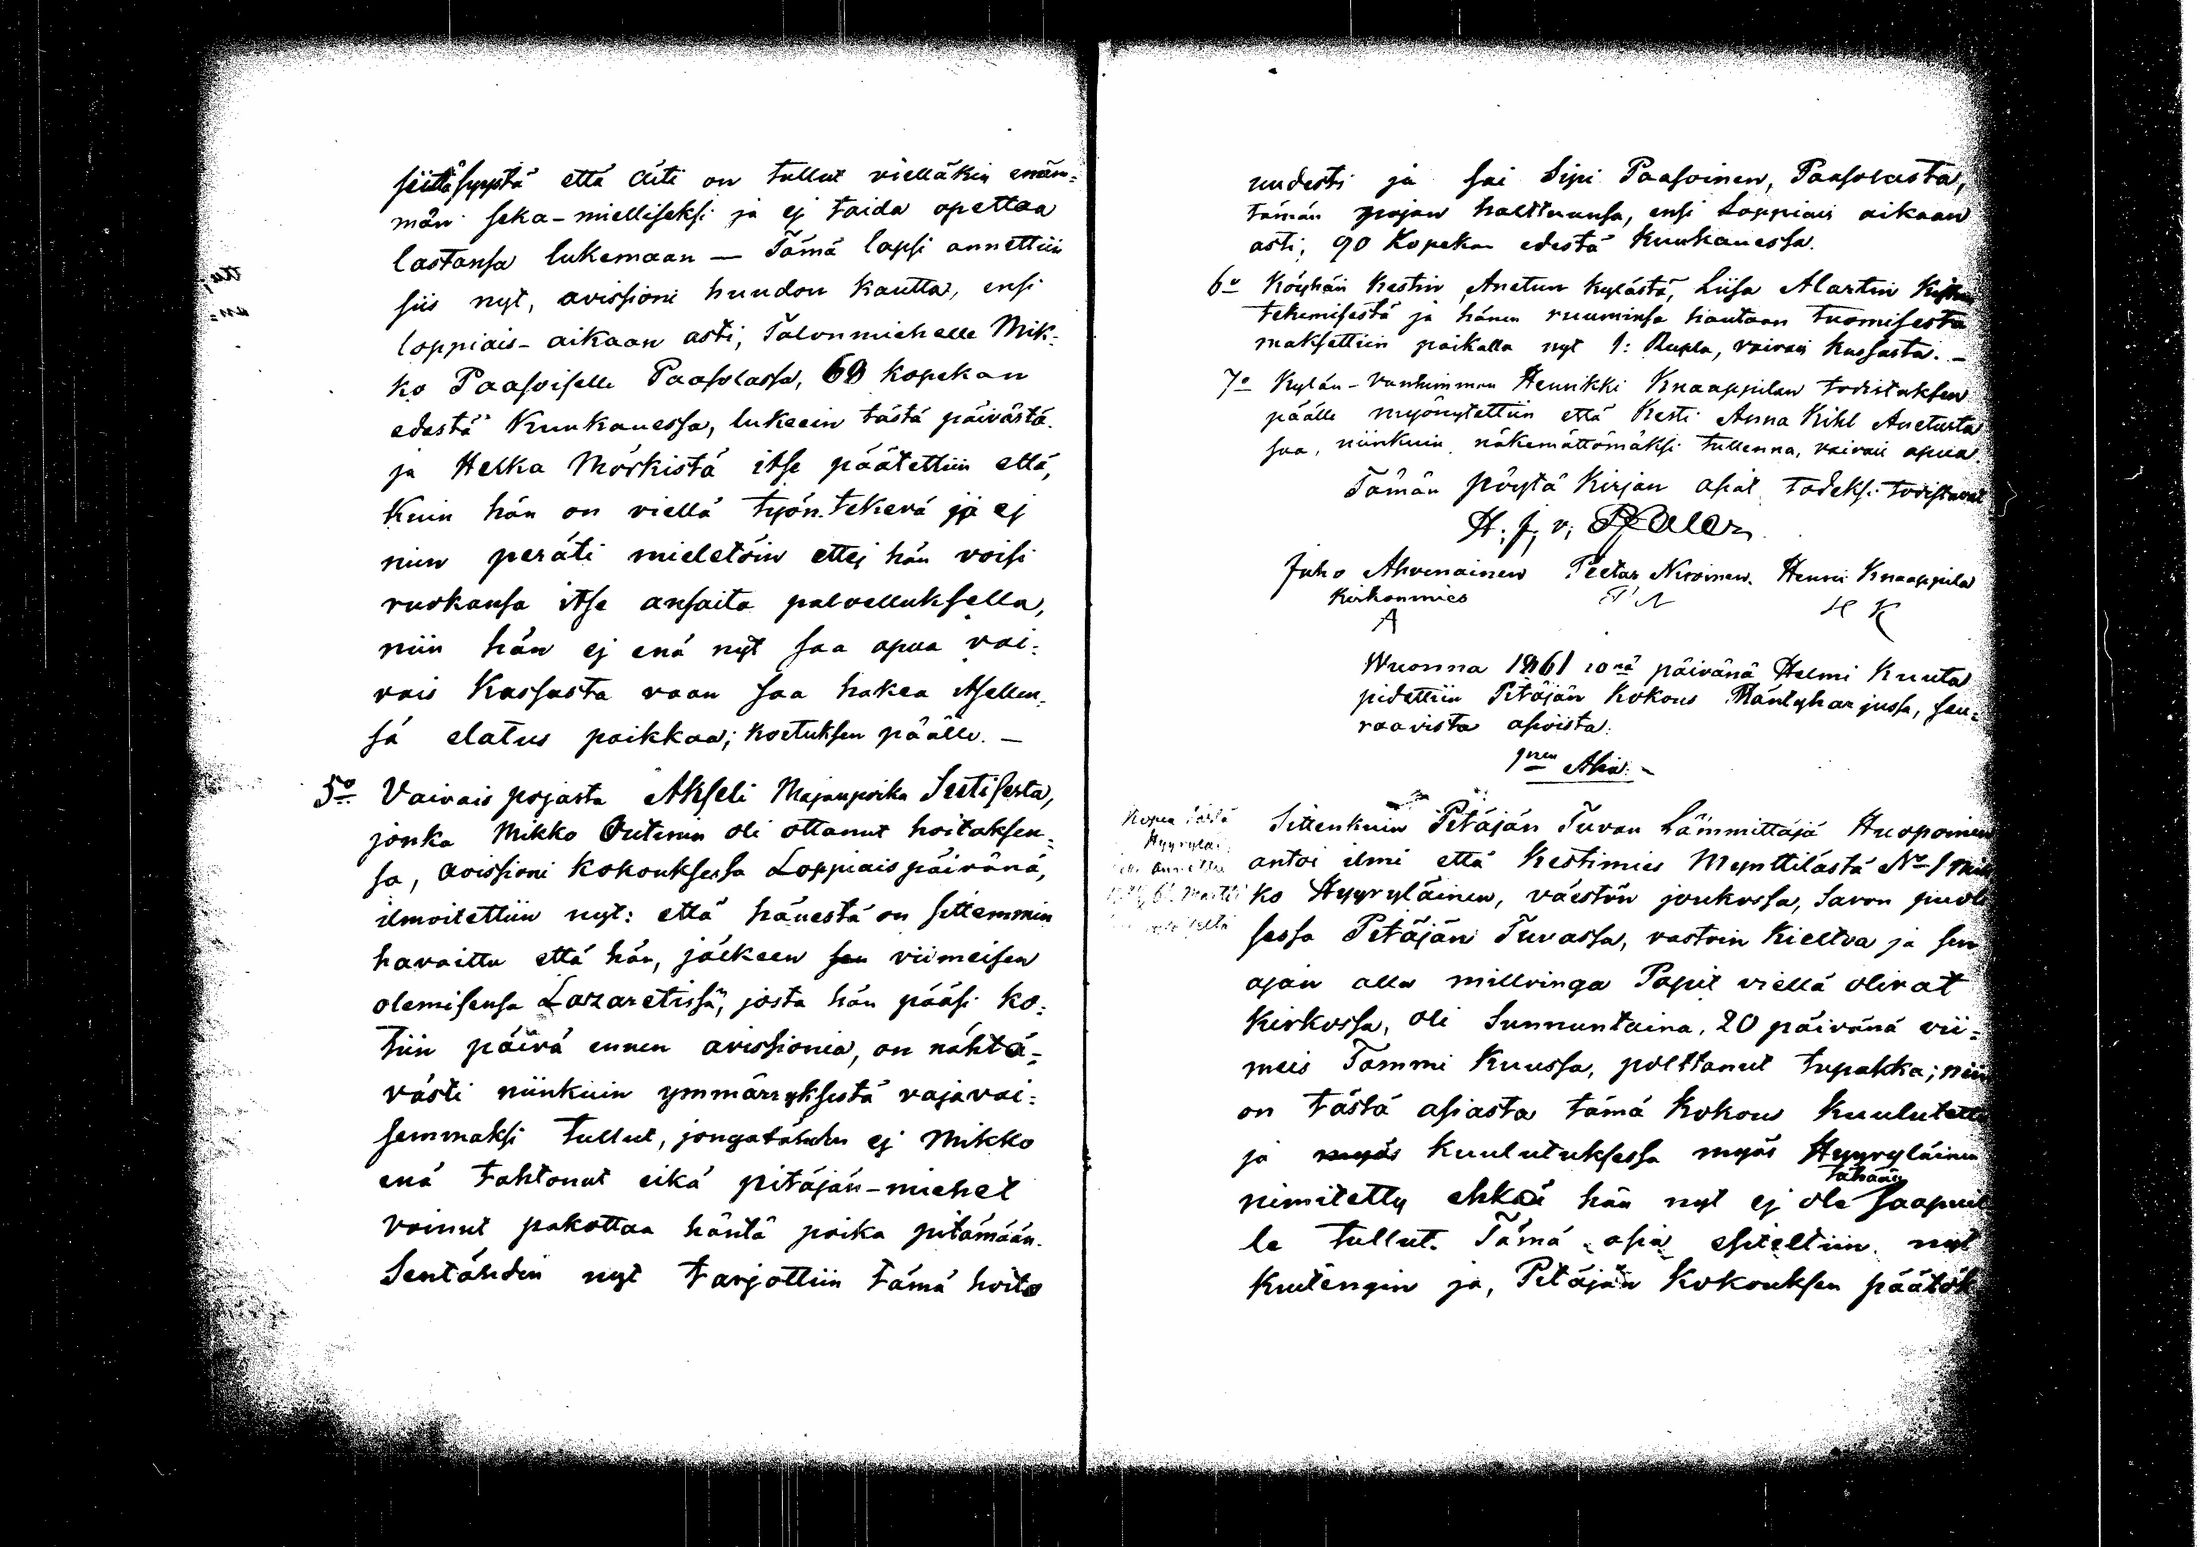 siittä syystä että äiti on tullut vielläkin enäm=
män seka-mielliseksi ja ej taida opettaa
lastansa lukemaan — Tämä lapsi annettiin
siis nyt, avissioni huudon kautta, ensi
loppiais-aikaan asti, Talonmiehelle Mik=
ko Paasoiselle Paasolassa, 60 kopekan
edestä Kuukauessa, lukeein tästä päivästä.
ja Helka Mörkistä itse päätettiin että,
Kuin hän on viellä työn tekevä ja ej
niin peräti mieletöin ettej hän voisi
ruokansa itse ansaita palvelluksella,
niin hän ej enä nyt saa apua vai=
vais Kassasta vaan saa hakea itsellen=
sä elatus paikkaa; koetuksen päälle. —
5o Vaivais pojasta Akseli Majanpoika Sestisesta,
jonka Mikko Outinin oli ottanut hoitaksen=
sa, avissioni kokouksessa Loppiais päivänä,
ilmoitettiin nyt: että hänestä on sittemmin
havaittu että hän, jälkeen sen viimeisen
olemisensa Lazaretissä, josta hän pääsi ko=
tiin päivä ennen avissionia, on nähtä=
västi niinkuin ymmärryksestä vajavai=
semmaksi tullut, jongatähden ej Mikko
enä tahtonut eikä pitäjän-miehet
voinut pakottaa häntä poika pitämään.
Sentähden nyt tarjottiin tämä hoito
uudesti ja sai Sipi Paasoinen, Paasolasta,
tämän pojan halttuunsa, ensi Loppiais aikaan
asti, 90 Kopekan edestä Kuukauessa.
6o Köyhän Kestin Anetun kylästä, Liisa Martin Kistun
tekemisestä ja hänen ruuminsa hautaan tuomisesta
maksettiin paikalla nyt 1: Rupla, vaivais kassasta. —
7o Kylän-vanhimman Henrikki Knaappilan todistuksen
päälle myönytettiin että Kesti Anna Kihl Anetusta
saa, niinkuin näkemättömäksi tullenna, vaivais apua.
Tämän pöytä Kirjan asiat todeksi todistavat
H. J. v. Pfaler
Juho Ahvenainen Peetar Niroinen. Henri Knaappila
Kirkonmies P N H K
A
Wuonna 1861 10nä päivänä Helmi Kuuta
pidettiin Pitäjän Kokous Mäntyharjussa, seu=
raavista asioista:
1nen Asia. —
Kopia tästä
Hyyryläi
annettu
6. Martti
Sittenkuin Pitäjän Tuvan Lämmittäjä Huopoinen
antoi ilmi että Kestimies Mynttilästä No 1 Mik
ko Hyyryläinen, väestön joukossa, Savon puoli
sessa Pitäjän Tuvassa, vastoin Kieltoa ja sen
ajan alla millvinga Papit viellä olivat
Kirkossa, oli Sunnuntaina, 20 päivänä vii=
meis Tammi Kuussa, polttanut tupakka; niin
on tästä asiasta tämä Kokous Kuulutettu
ja myös Kuulutuksessa myös Hyyryläinen
nimitetty ehkä hän nyt ej ole tähään saapuil
le tullut. Tämä asia esiteltiin nyt
kuitengin ja, Pitäjän Kokouksen päätök